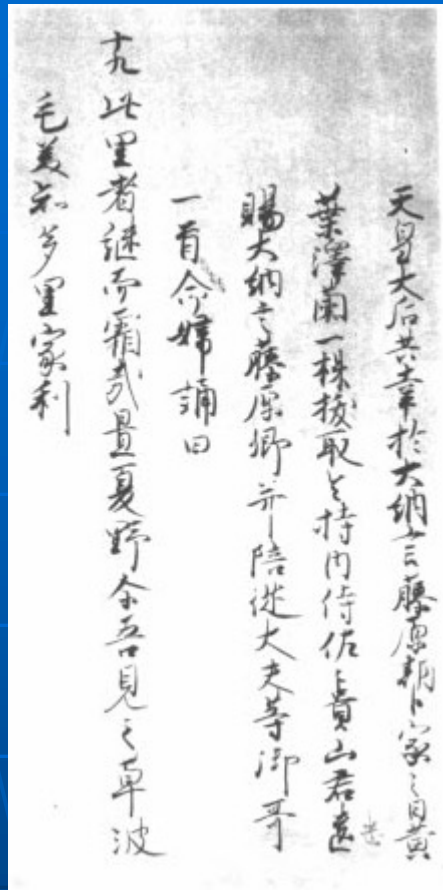 天皇大后共幸於大納言藤原朝臣家之日黄
葉澤蘭一株拔取令持内侍佐々貴山君遣
賜大納言藤原卿并陪従大夫等御哥
一首命婦誦曰
十九此里者継而霜哉置夏野尓吾見之草波
毛美知多里家利